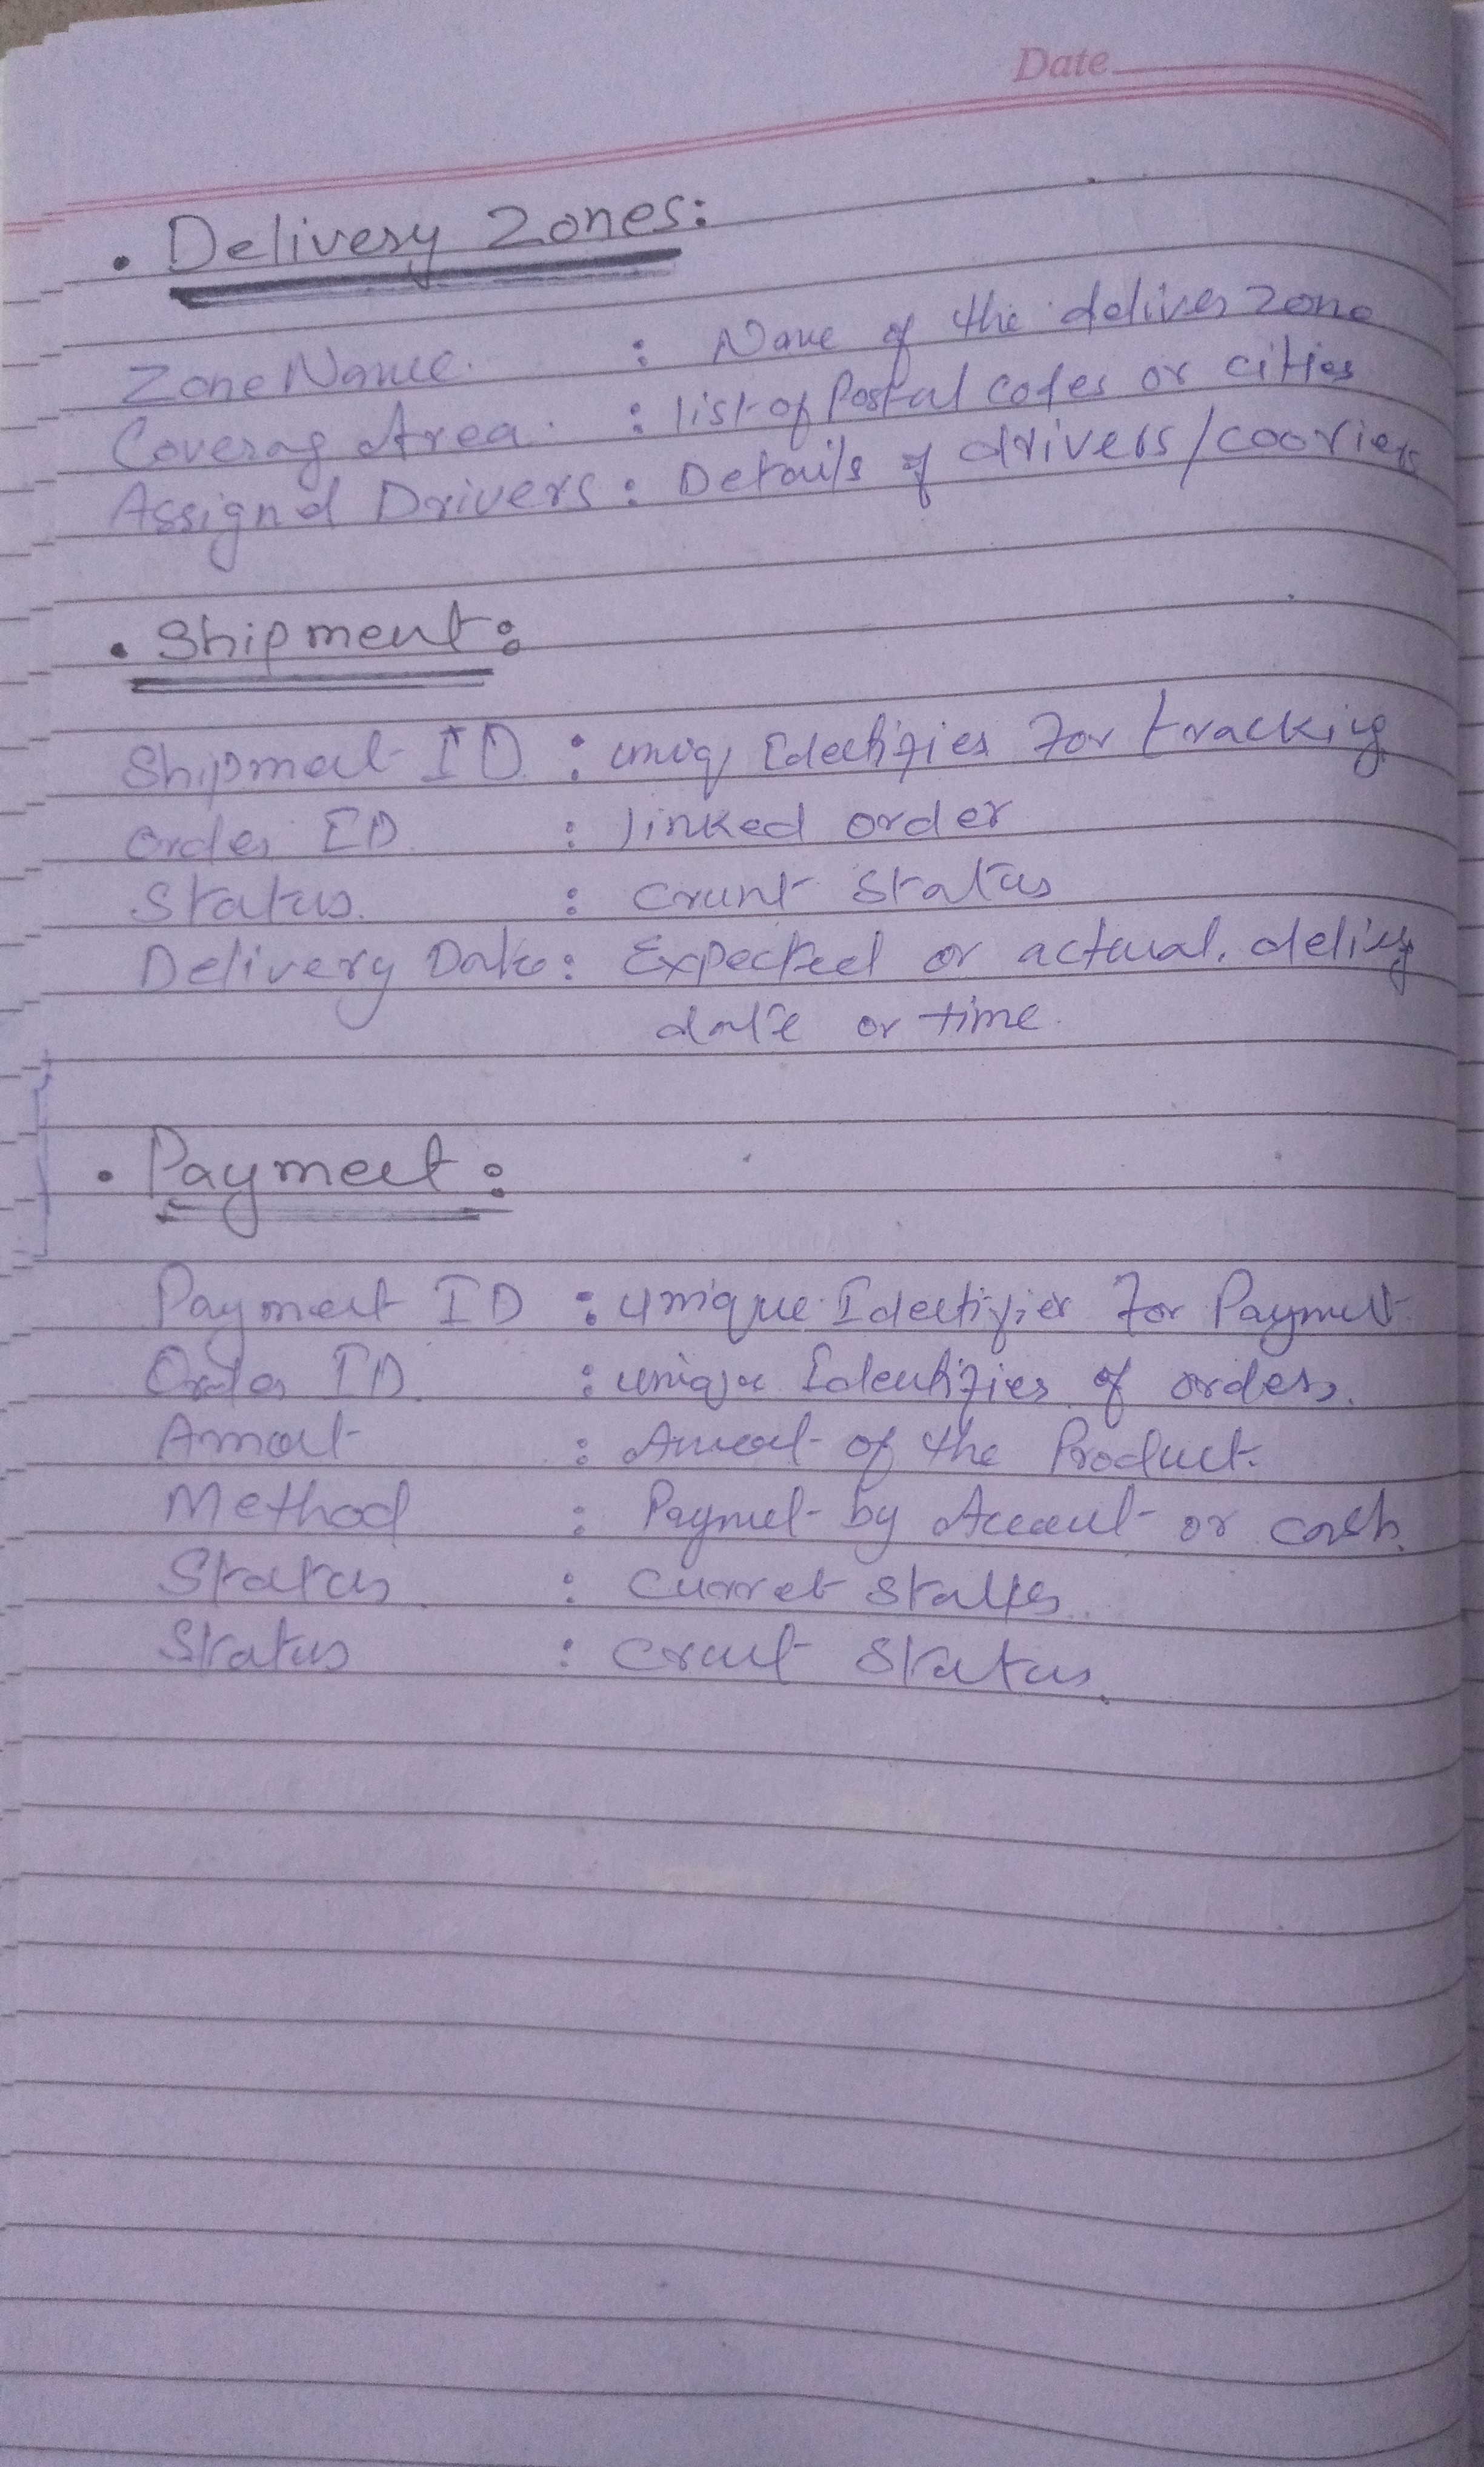 Date
• Delivery Zones:
Zone Name : Name of the deliver zone
Coverag Area : list of Postal codes or cities
Assignd Drivers : Details of drivers/cooriers
• Shipment:
Shipmet ID : uniq Idetifier For tracking
Order ID : linked order
Status : Crunt Status
Delivery Date: Expected or actual. delivy
date or time.
• Paymet:
Paymet ID : unique Idetifier For Paymet
Order ID : unique Identifier of order.
Amout : Amout of the Product.
Method : Paymet by Accout or cash.
Status : Curret Status
Status : Crut Status.